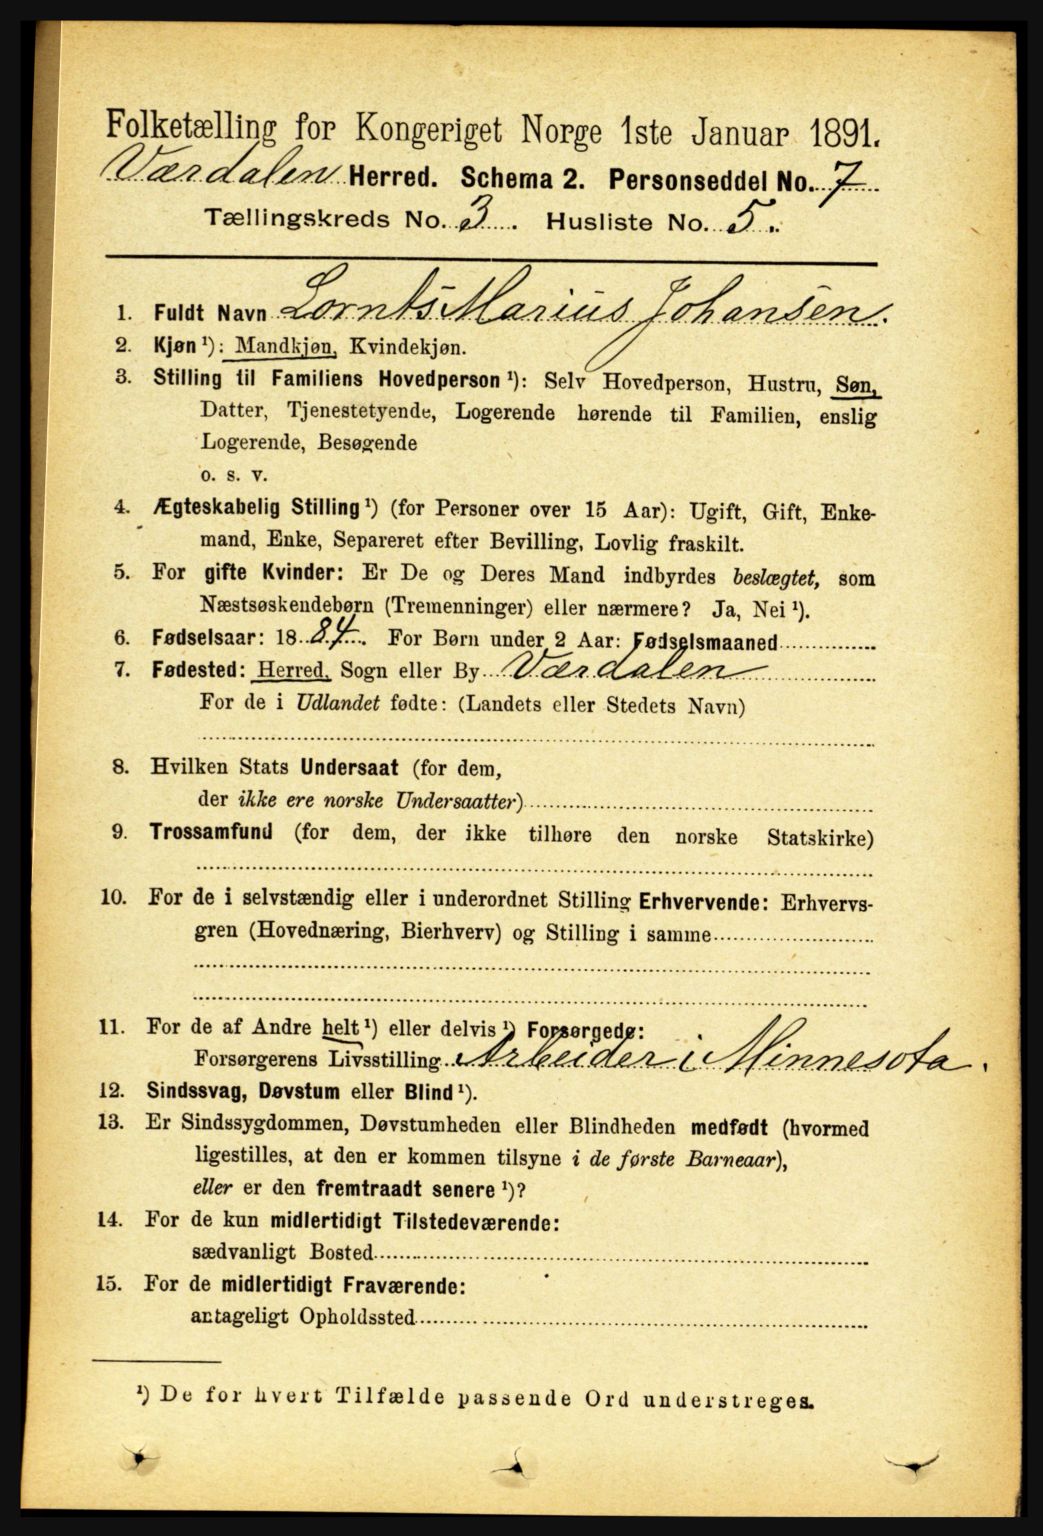 Folketælling for Kongeriget Norge 1ste Januar 1891.
Værdalen Herred. Schema 2. Personseddel No. 7
Tællingskreds No. 3. Husliste No. 5.
1. Fuldt Navn Lornts Marius Johansen.
2. Kjøn ¹): Mandkjøn, Kvindekjøn.
3. Stilling til Familiens Hovedperson ¹): Selv Hovedperson, Hustru, Søn,
Datter, Tjenestetyende, Logerende hørende til Familien, enslig
Logerende, Besøgende
o. s. v.
4. Ægteskabelig Stilling ¹) (for Personer over 15 Aar): Ugift, Gift, Enke-
mand, Enke, Separeret efter Bevilling, Lovlig fraskilt.
5. For gifte Kvinder: Er De og Deres Mand indbyrdes beslægtet, som
Næstsøskendebørn (Tremenninger) eller nærmere? Ja, Nei ¹).
6. Fødselsaar: 1884. For Børn under 2 Aar: Fødselsmaaned
7. Fødested: Herred, Sogn eller By Værdalen
For de i Udlandet fødte: (Landets eller Stedets Navn)
8. Hvilken Stats Undersaat (for dem,
der ikke ere norske Undersaatter)
9. Trossamfund (for dem, der ikke tilhøre den norske Statskirke)
10. For de i selvstændig eller i underordnet Stilling Erhvervende: Erhvervs-
gren (Hovednæring, Bierhverv) og Stilling i samme
11. For de af Andre helt ¹) eller delvis ¹) Forsørgede:
Forsørgerens Livsstilling Arbeider i Minnesota.
12. Sindssvag, Døvstum eller Blind ¹).
13. Er Sindssygdommen, Døvstumheden eller Blindheden medfødt (hvormed
ligestilles, at den er kommen tilsyne i de første Barneaar),
eller er den fremtraadt senere ¹)?
14. For de kun midlertidigt Tilstedeværende:
sædvanligt Bosted
15. For de midlertidigt Fraværende:
antageligt Opholdssted
¹) De for hvert Tilfælde passende Ord understreges.